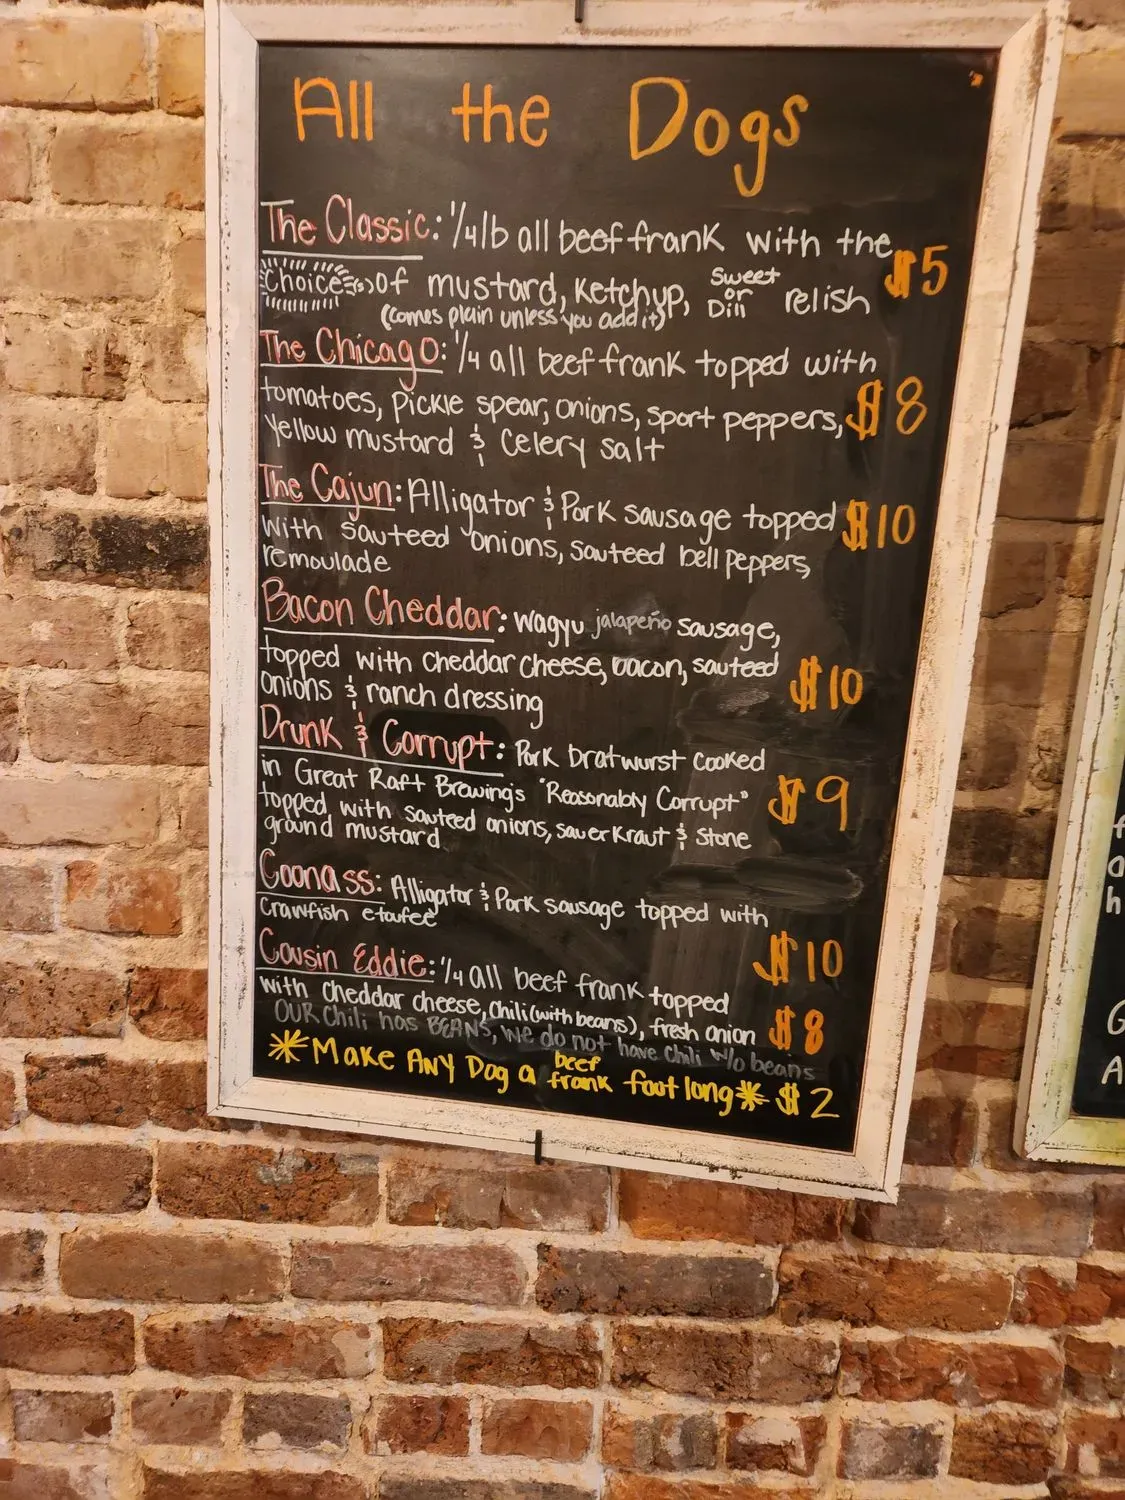 All the Dogs
The Classic: 1/4 lb all beef frank with the
choice(s) of mustard, Ketchup, Sweet or Dill relish $5
(comes plain unless you add it)
The Chicago: 1/4 all beef frank topped with
tomatoes, pickle spear, onions, sport peppers, $8
Yellow mustard & Celery salt
The Cajun: Alligator & Pork sausage topped $10
with sauteed onions, sauteed bell peppers,
remoulade
Bacon Cheddar: Wagyu jalapeño sausage,
topped with cheddar cheese, bacon, sauteed $10
onions & ranch dressing
Drunk & Corrupt: Pork bratwurst cooked
in Great Raft Brewing's "Reasonably Corrupt" $9
topped with sauteed onions, sauerkraut & stone
ground mustard
Coonass: Alligator & Pork sausage topped with
crawfish etoufee $10
Cousin Eddie: 1/4 all beef frank topped
with cheddar cheese, chili (with beans), fresh onion $8
OUR Chili has BEANS, We do not have chili w/o beans
*Make ANY Dog a beef frank foot long* $2
G
A